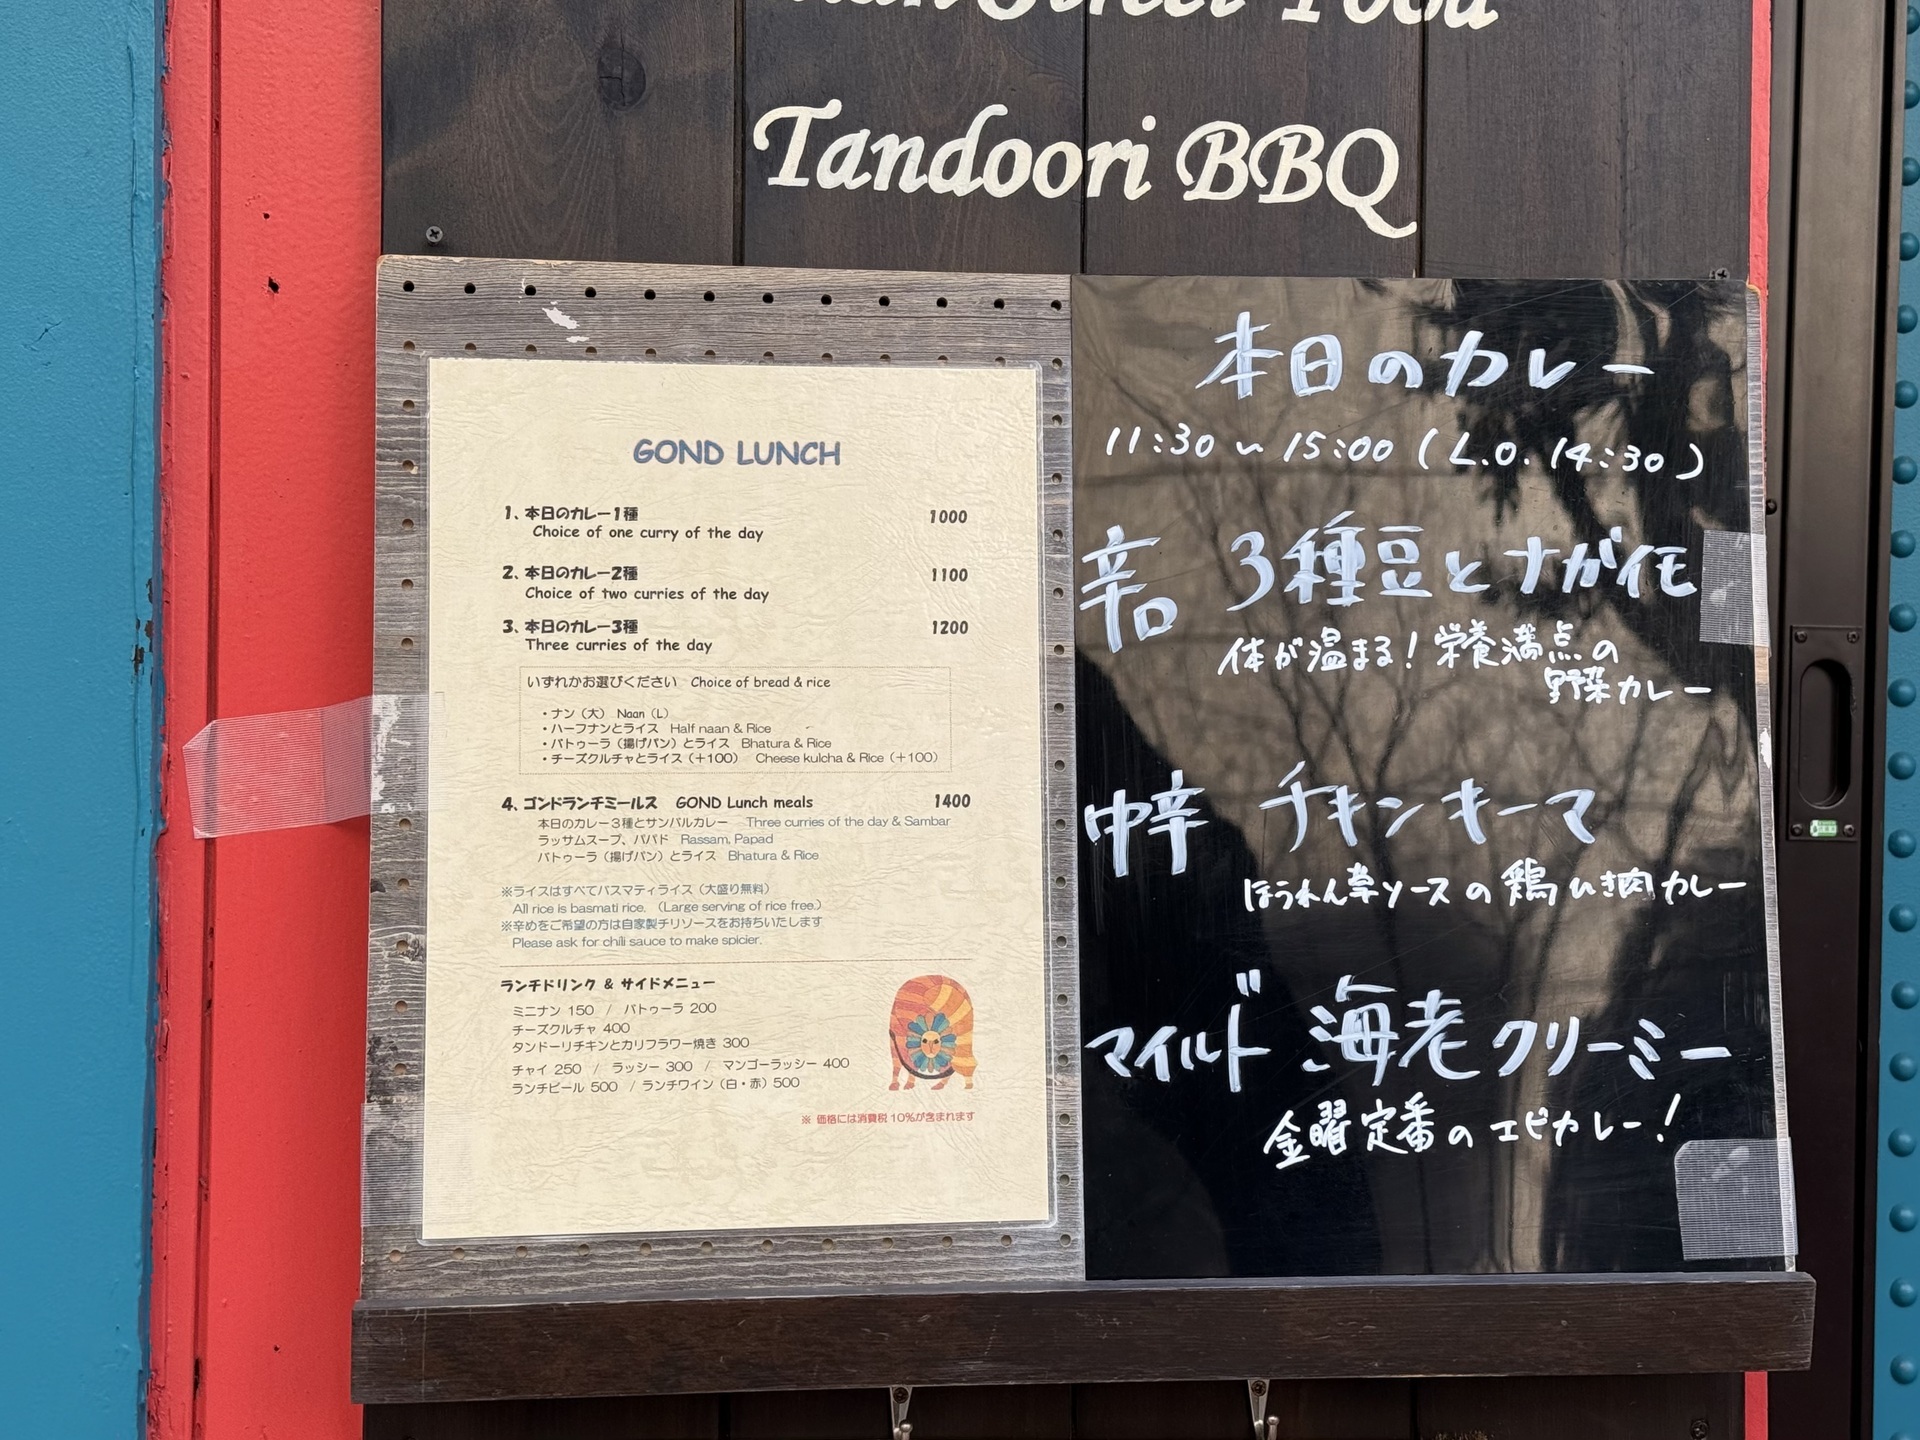 Street Food
Tandoori BBQ
GOND LUNCH
1、本日のカレー1種 1000
Choice of one curry of the day
2、本日のカレー2種 1100
Choice of two curries of the day
3、本日のカレー3種 1200
Three curries of the day
いずれかお選びください Choice of bread & rice
・ナン（大） Naan（L）
・ハーフナンとライス Half naan & Rice
・バトゥーラ（揚げパン）とライス Bhatura & Rice
・チーズクルチャとライス（+100） Cheese kulcha & Rice（+100）
4、ゴンドランチミールス GOND Lunch meals 1400
本日のカレー3種とサンバルカレー Three curries of the day & Sambar
ラッサムスープ、パパド Rassam, Papad
バトゥーラ（揚げパン）とライス Bhatura & Rice
※ライスはすべてバスマティライス（大盛り無料）
All rice is basmati rice. （Large serving of rice free.）
※辛めをご希望の方は自家製チリソースをお持ちいたします
Please ask for chili sauce to make spicier.
ランチドリンク & サイドメニュー
ミニナン 150 / バトゥーラ 200
チーズクルチャ 400
タンドーリチキンとカリフラワー焼き 300
チャイ 250 / ラッシー 300 / マンゴーラッシー 400
ランチビール 500 / ランチワイン（白・赤）500
※ 価格には消費税10%が含まれます
本日のカレー
11:30〜15:00（L.O. 14:30）
辛口 3種豆とナガイモ
体が温まる！栄養満点の
野菜カレー
中辛 チキンキーマ
ほうれん草ソースの鶏ひき肉カレー
マイルド 海老クリーミー
金曜定番のエビカレー！